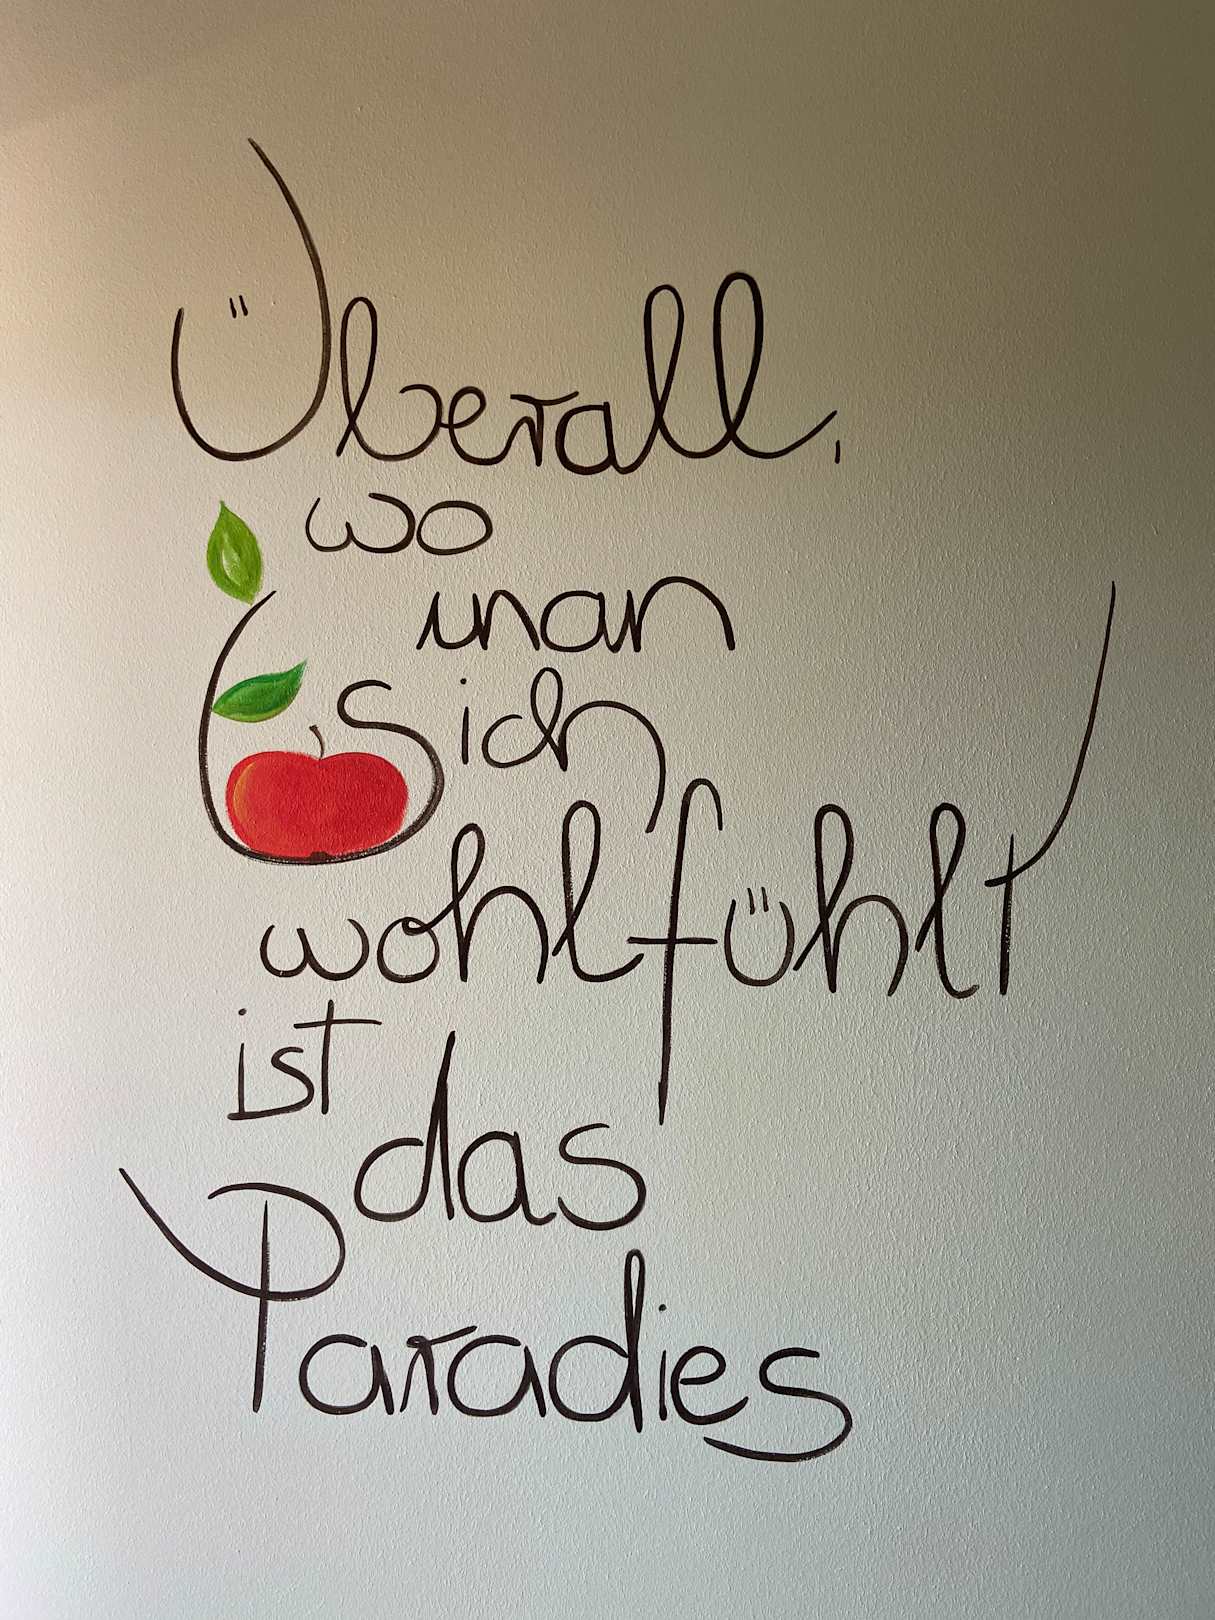 Überall,
wo
man
sich
wohlfühlt
ist
das
Paradies